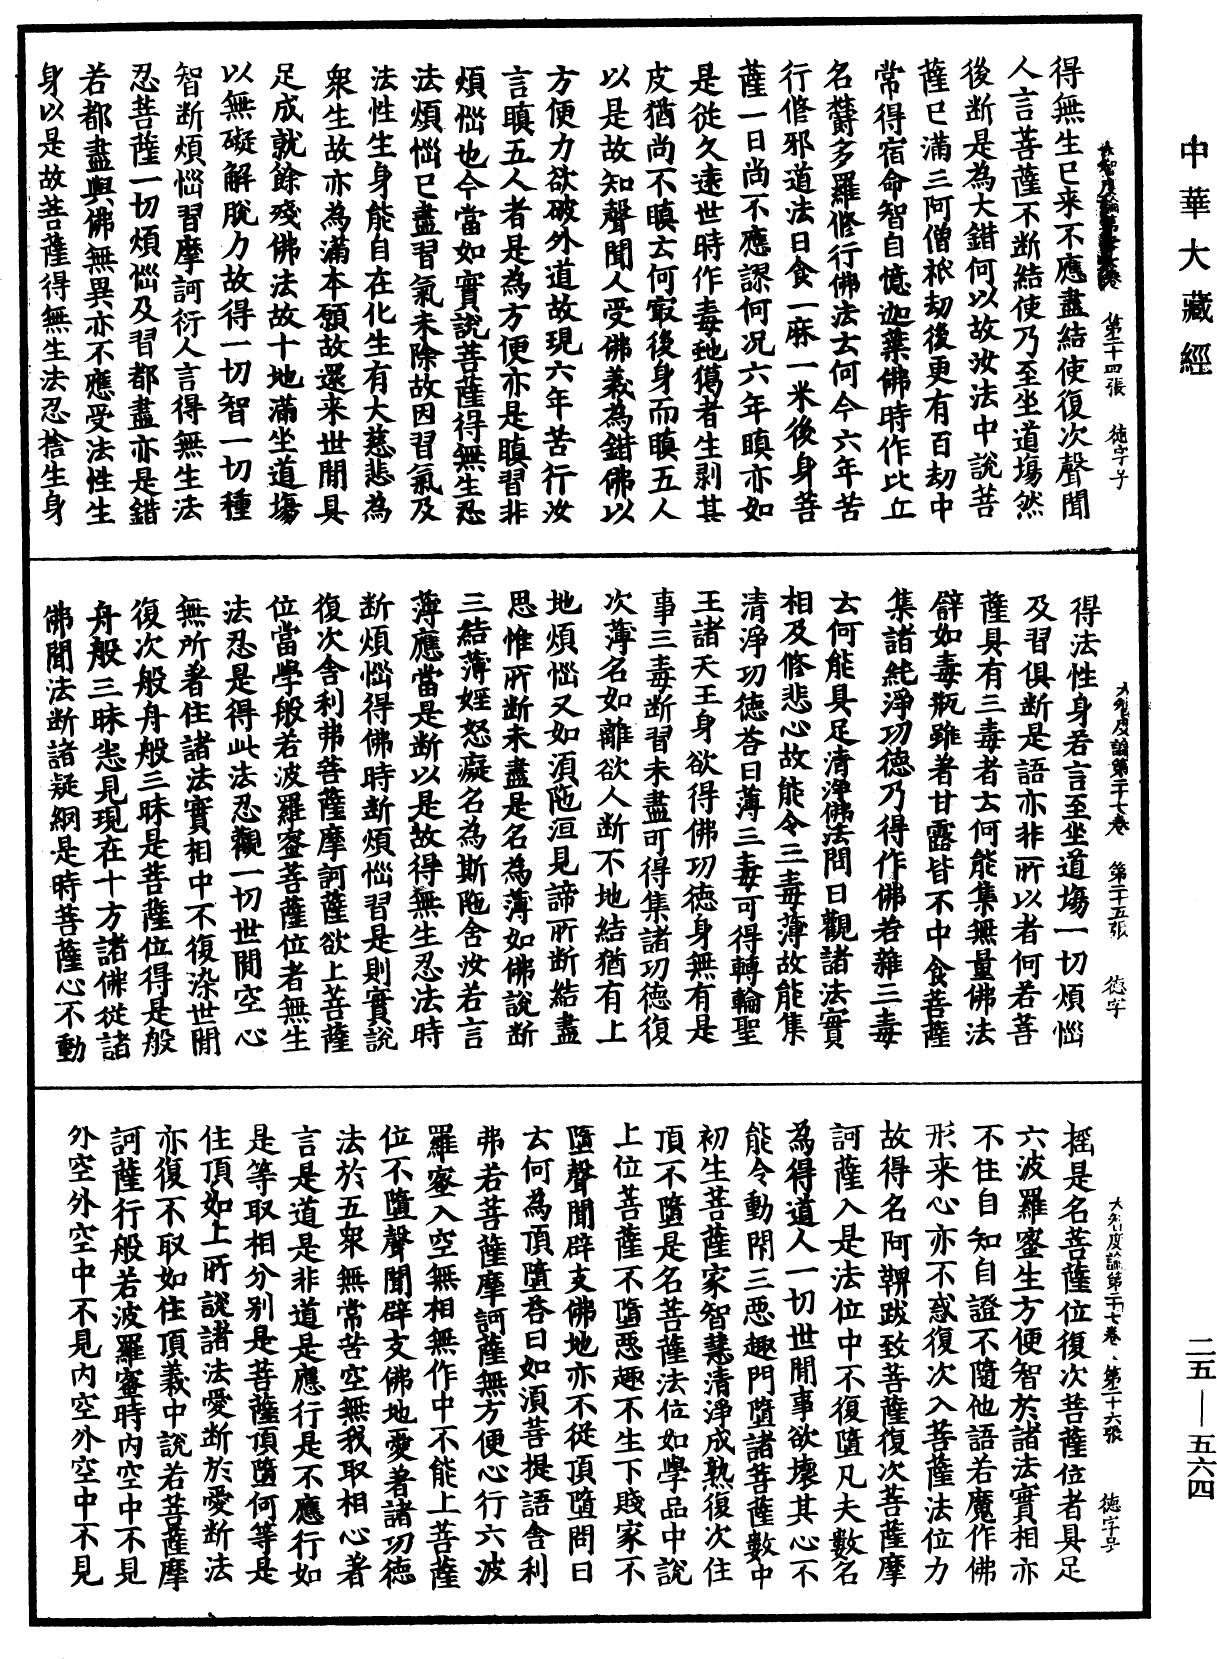 中華大藏經
第二十四張 德字号
得無生已来不應盡結使復次聲聞
人言菩薩不断結使乃至坐道塲然
後断是為大錯何以故汝法中說菩
薩已滿三阿僧祇劫後更有百劫中
常得宿命智自憶迦葉佛時作比丘
名欝多羅修行佛法云何今六年苦
行修邪道法日食一麻一米後身菩
薩一日尚不應謬何况六年瞋亦如
是從久遠世時作毒虵獦者生剥其
皮猶尚不瞋云何㝡後身而瞋五人
以是故知聲聞人受佛義為錯佛以
方便力欲破外道故現六年苦行汝
言瞋五人者是為方便亦是瞋習非
煩惱也今當如實說菩薩得無生忍
法煩惱已盡習氣未除故因習氣及
法性生身能自在化生有大慈悲為
衆生故亦為滿本願故還来世間具
足成就餘殘佛法故十地滿坐道塲
以無礙解脫力故得一切智一切種
智断煩惱習摩訶衍人言得無生法
忍菩薩一切煩惱及習都盡亦是錯
若都盡與佛無異亦不應受法性生
身以是故菩薩得無生法忍捨生身
大智度論第二十七卷 第二十五張 德字
得法性身若言至坐道塲一切煩惱
及習俱断是語亦非所以者何若菩
薩具有三毒者云何能集無量佛法
譬如毒瓶雖著甘露皆不中食菩薩
集諸純淨功德乃得作佛若雜三毒
云何能具足清淨佛法問曰觀諸法實
相及修悲心故能令三毒薄故能集
清淨功德荅曰薄三毒可得轉輪聖
王諸天王身欲得佛功德身無有是
事三毒断習未盡可得集諸功德復
次薄名如離欲人断下地結猶有上
地煩惱又如湏陁洹見諦所断結盡
思惟所断未盡是名為薄如佛說断
三結薄婬怒癡名為斯陁含汝若言
薄應當是断以是故得無生忍法時
断煩惱得佛時断煩惱習是則實說
復次舎利弗菩薩摩訶薩欲上菩薩
位當學般若波羅蜜菩薩位者無生
法忍是得此法忍觀一切世間空心
無所著住諸法實相中不復染世間
復次般舟般三昧是菩薩位得是般
舟般三昧悉見現在十方諸佛從諸
佛聞法断諸疑網是時菩薩心不動
大智度論第二十七卷 第二十六張 德字号
揺是名菩薩位復次菩薩位者具足
六波羅蜜生方便智於諸法實相亦
不住自知自證不隨他語若魔作佛
形来心亦不惑復次入菩薩法位力
故得名阿鞞跋致菩薩復次菩薩摩
訶薩入是法位中不復墮凡夫數名
為得道人一切世間事欲壞其心不
能令動閇三惡趣門墮諸菩薩數中
初生菩薩家智慧清淨成熟復次住
頂不墮是名菩薩法位如學品中說
上位菩薩不墮惡趣不生下賤家不
墮聲聞辟支佛地亦不從頂墮問曰
云何為頂墮荅曰如湏菩提語舎利
弗若菩薩摩訶薩無方便心行六波
羅蜜入空無相無作中不能上菩薩
位不墮聲聞辟支佛地愛著諸功德
法於五衆無常苦空無我取相心著
言是道是非道是應行是不應行如
是等取相分別是菩薩頂墮何等是
住頂如上所說諸法愛断於愛断法
亦復不取如住頂義中說若菩薩摩
訶薩行般若波羅蜜時內空中不見
外空外空中不見內空外空中不見
二五—五六四